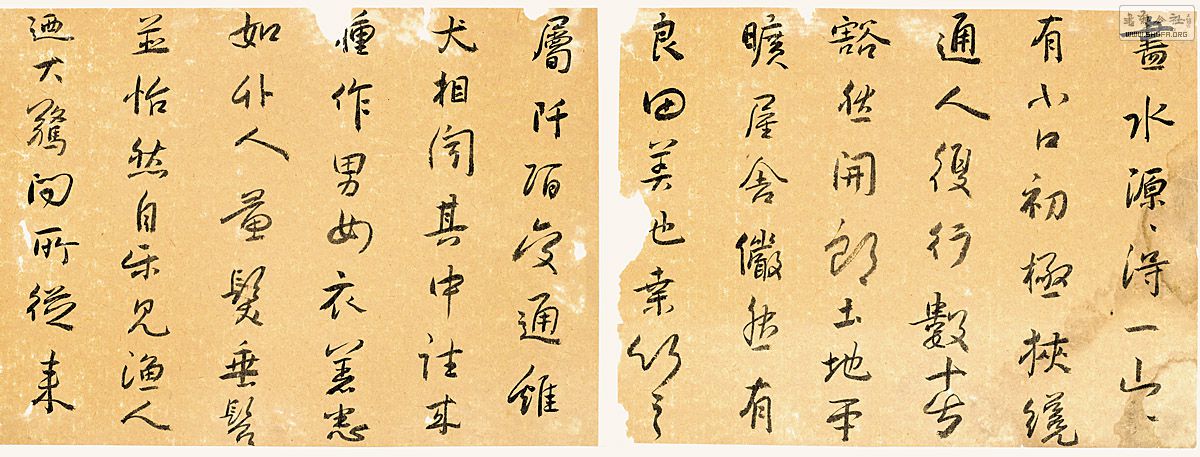 盡水源〻得一山〻
有小口初極挾纔
通人復行數十步
豁然開朗土地平
曠屋舍儼然有
良田美池桑竹之
屬阡陌交通雞
犬相聞其中往來
種作男女衣著悉
如外人黃髮垂髫
並怡然自樂見漁人
迺大驚問所從來
WWW.SHUFA.ORG